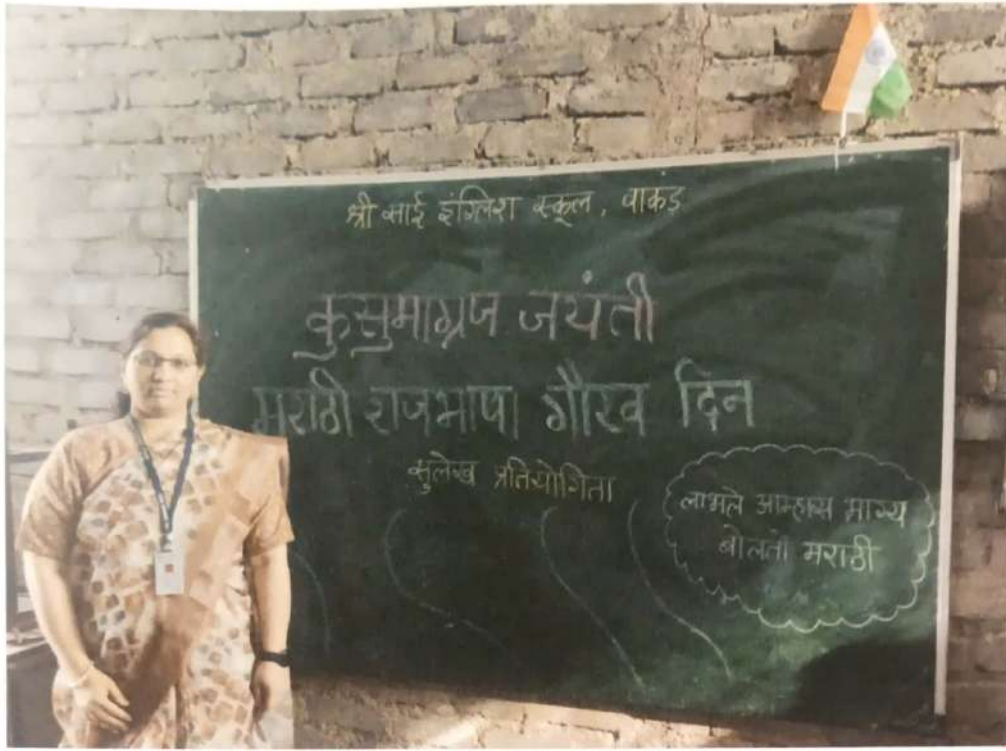 श्री साई इंग्लिश स्कूल, वाकड
कुसुमाग्रज जयंती
मराठी राजभाषा गौरव दिन
सुलेख प्रतियोगिता
लाभले आम्हास भाग्य
बोलतो मराठी